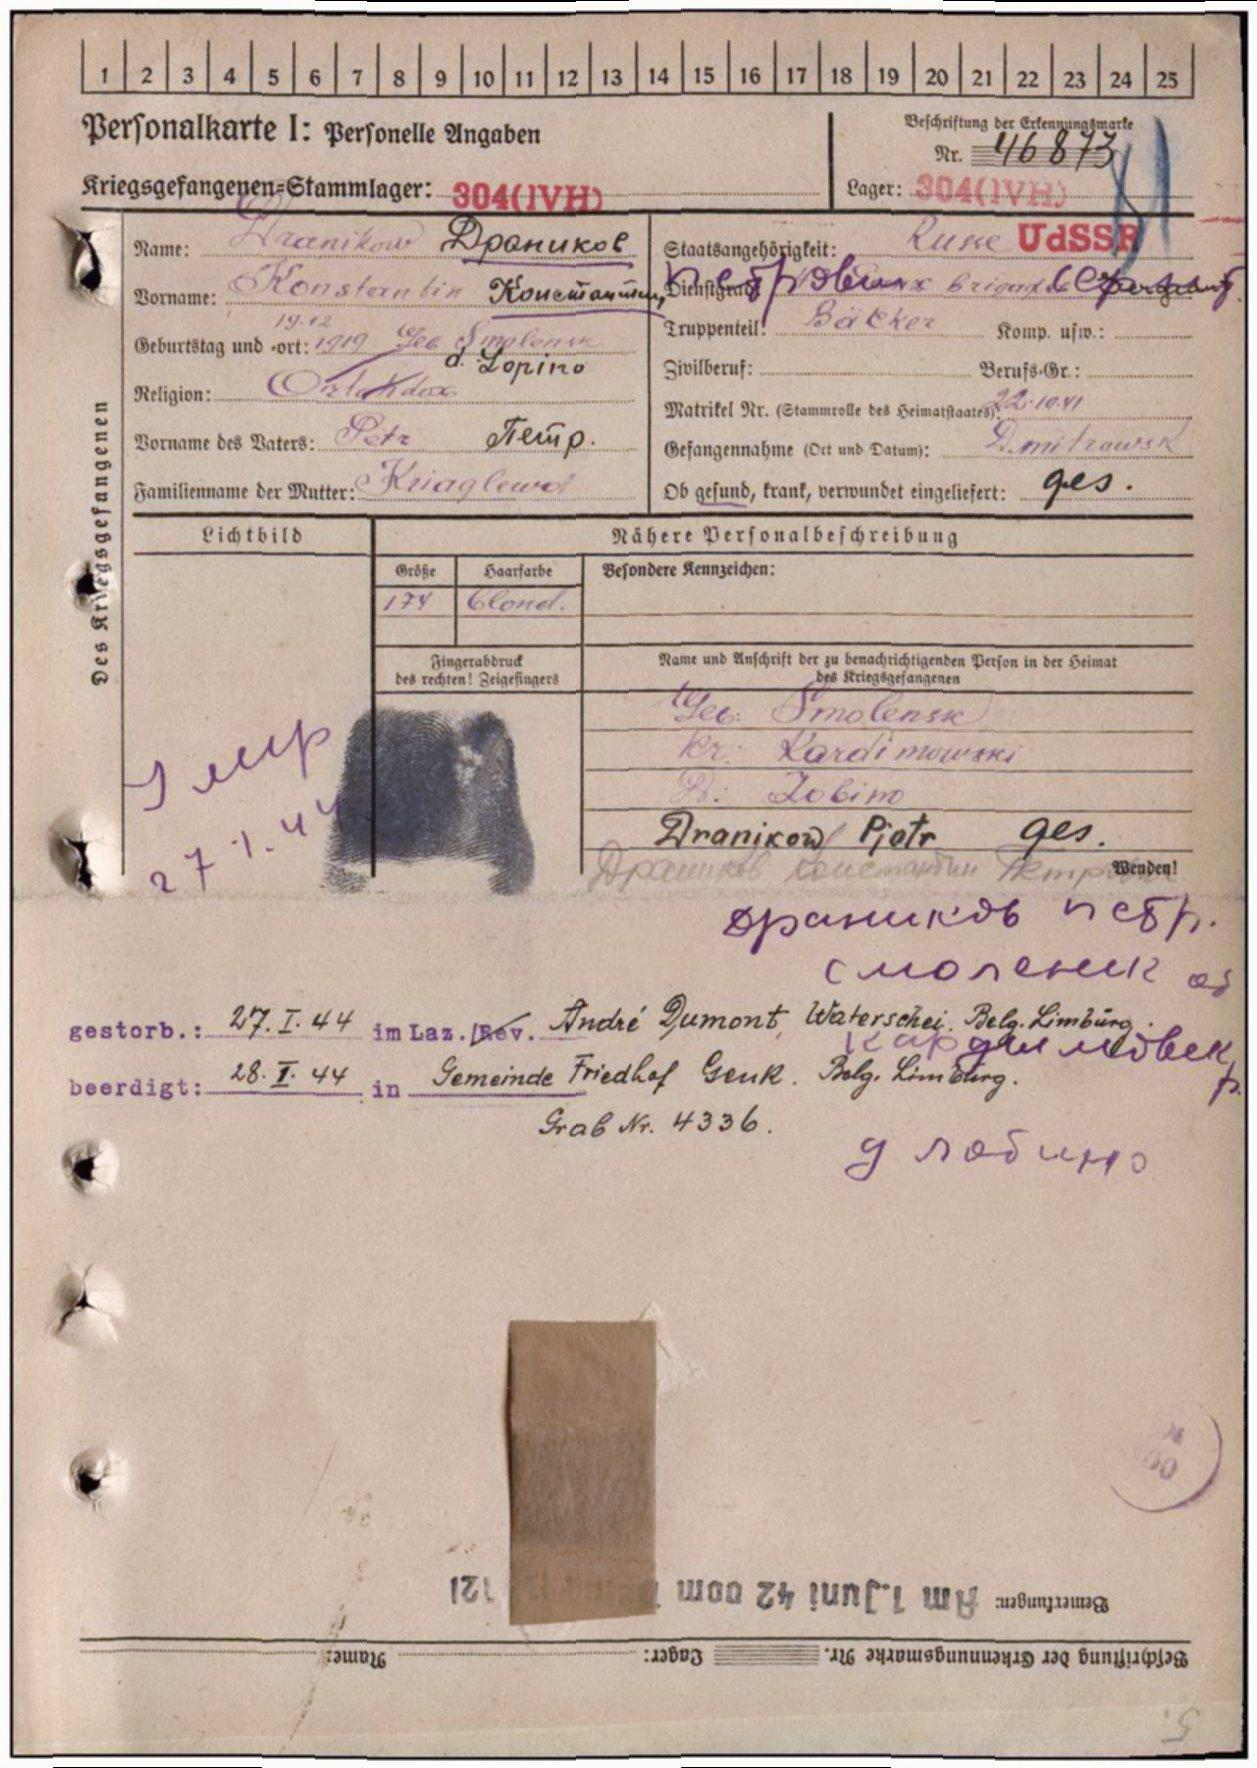 1 2 3 4 5 6 7 8 9 10 11 12 13 14 15 16 17 18 19 20 21 22 23 24 25
Personalkarte I: Personelle Angaben
Beschriftung der Erkennungsmarke
Nr. 46873
Kriegsgefangenen-Stammlager: 304(IVH)
Lager: 304(IVH)
Des Kriegsgefangenen
Name: Dranikow Драников
Vorname: Konstantin Константин
19.12
Geburtstag und -ort: 1919 Geb Smolensk
d. Lopino
Religion: Ortakdox
Vorname des Vaters: Petr Петр.
Familienname der Mutter:
Staatsangehörigkeit: Russe UdSSR
Dienstgrad:
Truppenteil: Bäcker Komp. usw.:
Zivilberuf: Berufs-Gr.:
Matrikel Nr. (Stammrolle des Heimatstaates): 22.10.41
Gefangennahme (Ort und Datum): Dmitrowsk
Ob gesund, krank, verwundet eingeliefert: ges.
Lichtbild
Nähere Personalbeschreibung
Größe Haarfarbe Besondere Kennzeichen:
174 blond.
Fingerabdruck
des rechten! Zeigefingers
Name und Anschrift der zu benachrichtigenden Person in der Heimat
des Kriegsgefangenen
Geb: Smolensk
Kr: Kardimowski
D: Lobino
Dranikow Pjotr ges.
Драников Константин
Wenden!
умер
27.1.44
драников петр.
смоленск об
gestorb.: 27.I.44 im Laz./Rev. André Dumont, Waterschei. Belg. Limburg.
beerdigt: 28.I.44 in Gemeinde Friedhof Genk. Belg. Limburg.
Grab Nr. 4336.
д лобино
Bemerkungen: Am 1. Juni 42 vom 121
Beschriftung der Erkennungsmarke Nr. Lager: Name: